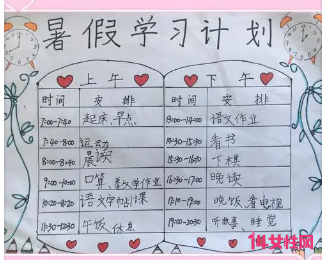 暑假学习计划
上午
下午
时间 安排 时间 安排
7:00-7:40 起床、早点 13:00-14:00 语文作业
7:40-8:00 运动 14:30-15:30 看书
8:00-8:40 晨读 15:30-16:10 下棋
9:00-10:00 口算、数学作业 16:30-17:00 晚读
10:20-11:20 语文字帖1课 17:10-19:00 晚饭、看电视
11:30-12:30 午饭、休息 19:00-20:30 听故事、睡觉
女性网